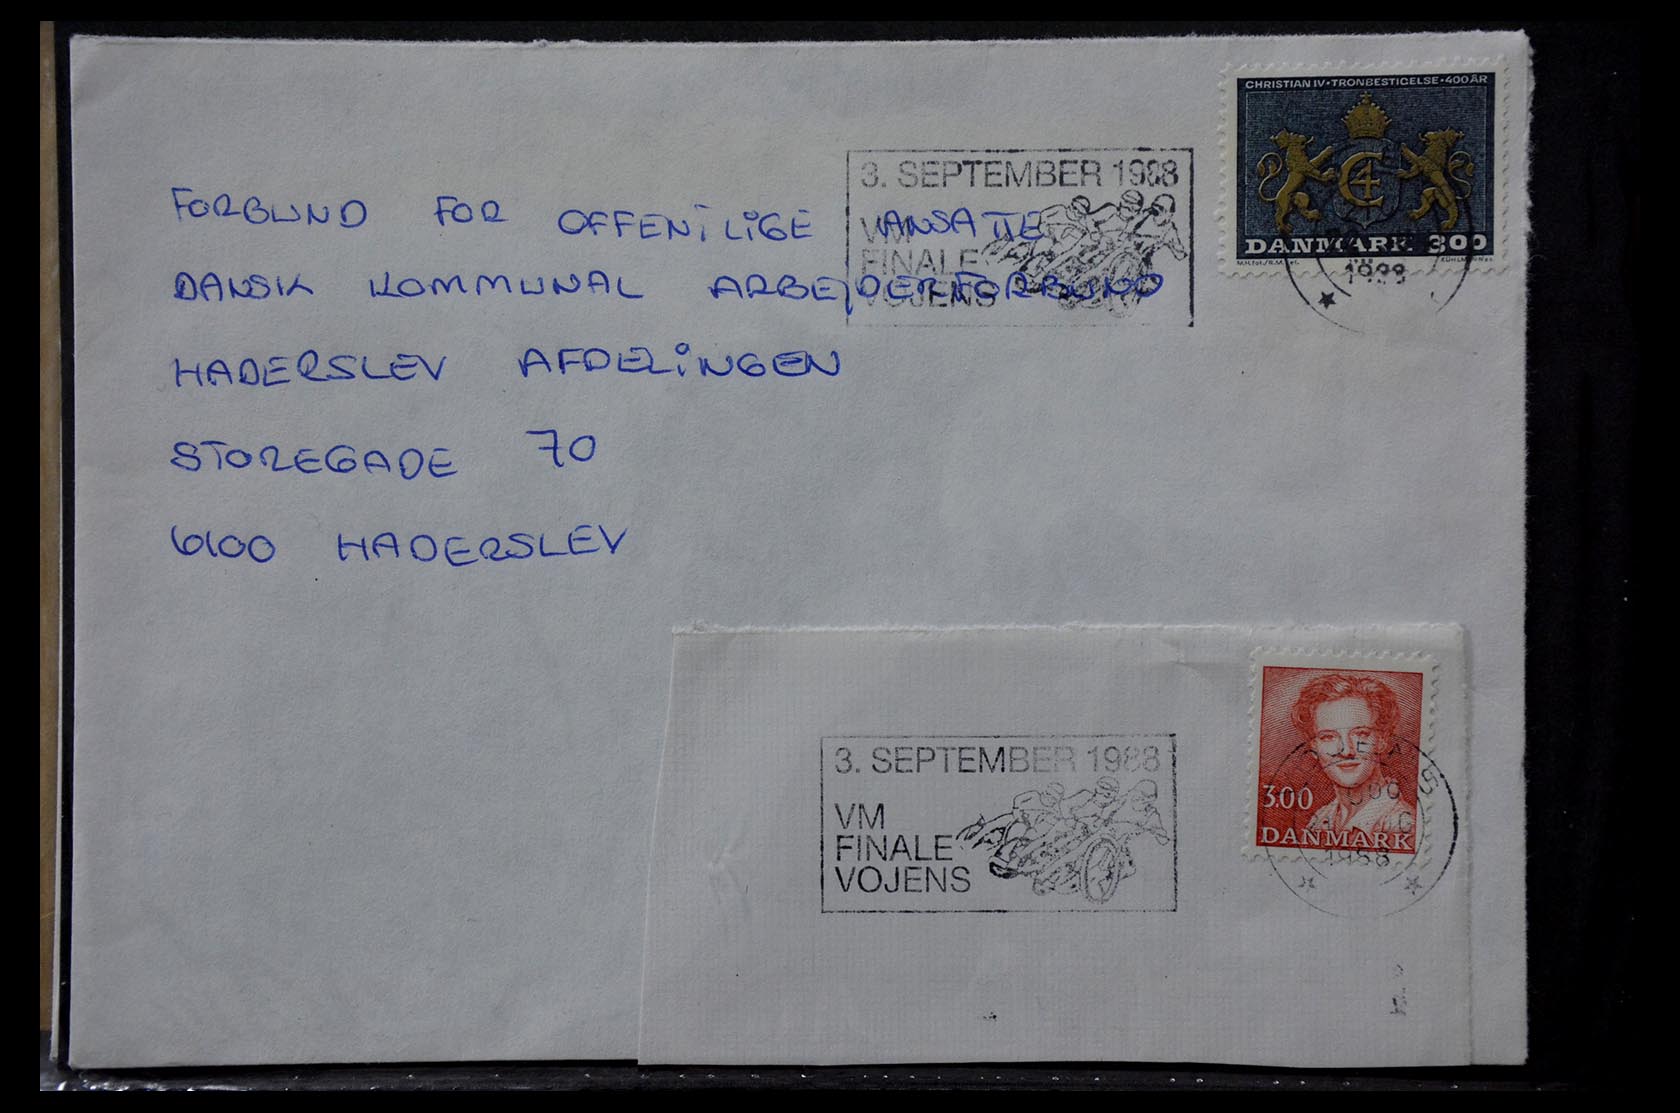 CHRISTIAN IV • TRONBESTIGELSE • 400 ÅR
C4
DANMARK 300
1988
3. SEPTEMBER 1988
VM
FINALE
VOJENS
FORBUND FOR OFFENTLIGE ANSATTE
DANSK KOMMUNAL ARBEJDERFORBUND
HADERSLEV AFDELINGEN
STOREGADE 70
6100 HADERSLEV
3. SEPTEMBER 1988
VM
FINALE
VOJENS
3.00
DANMARK
1988